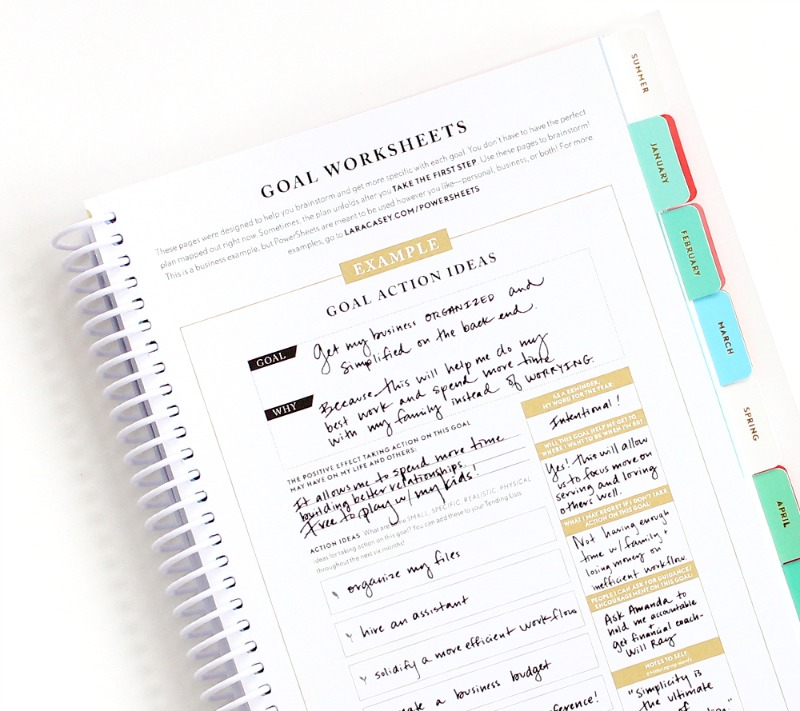 GOAL WORKSHEETS
These pages were designed to help you brainstorm and get more specific with each goal. You don't have to have the perfect
plan mapped out right now. Sometimes, the plan unfolds after you TAKE THE FIRST STEP. Use these pages to brainstorm!
This is a business example, but PowerSheets are meant to be used however you like—personal, business, or both! For more
examples, go to LARACASEY.COM/POWERSHEETS
EXAMPLE
GOAL ACTION IDEAS
GOAL
Get my business ORGANIZED and
simplified on the back end.
WHY
Because this will help me do my
best work and spend more time
with my family instead of WORRYING.
THE POSITIVE EFFECT TAKING ACTION ON THIS GOAL
MAY HAVE ON MY LIFE AND OTHERS:
It allows me to spend more time
building better relationships.
Free to play w/ my kids!
ACTION IDEAS What are some SMALL, SPECIFIC, REALISTIC, PHYSICAL
ideas for taking action on this goal? You can add these to your Tending Lists
throughout the next six months!
organize my files
hire an assistant
solidify a more efficient workflow
make a business budget
AS A REMINDER,
MY WORD FOR THE YEAR:
Intentional!
WILL THIS GOAL HELP ME GET TO
WHERE I WANT TO BE WHEN I'M 80?
Yes! This will allow
us to focus more on
serving and loving
others well.
WHAT I MAY REGRET IF I DON'T TAKE
ACTION ON THIS GOAL:
Not having enough
time w/ family +
losing money on
inefficient workflow.
PEOPLE I CAN ASK FOR GUIDANCE/
ENCOURAGEMENT ON THIS GOAL:
Ask Amanda to
hold me accountable
+
get financial coach-
Will Ray
NOTES TO SELF
"Simplicity is
the ultimate
SUMMER
JANUARY
FEBRUARY
MARCH
SPRING
APRIL